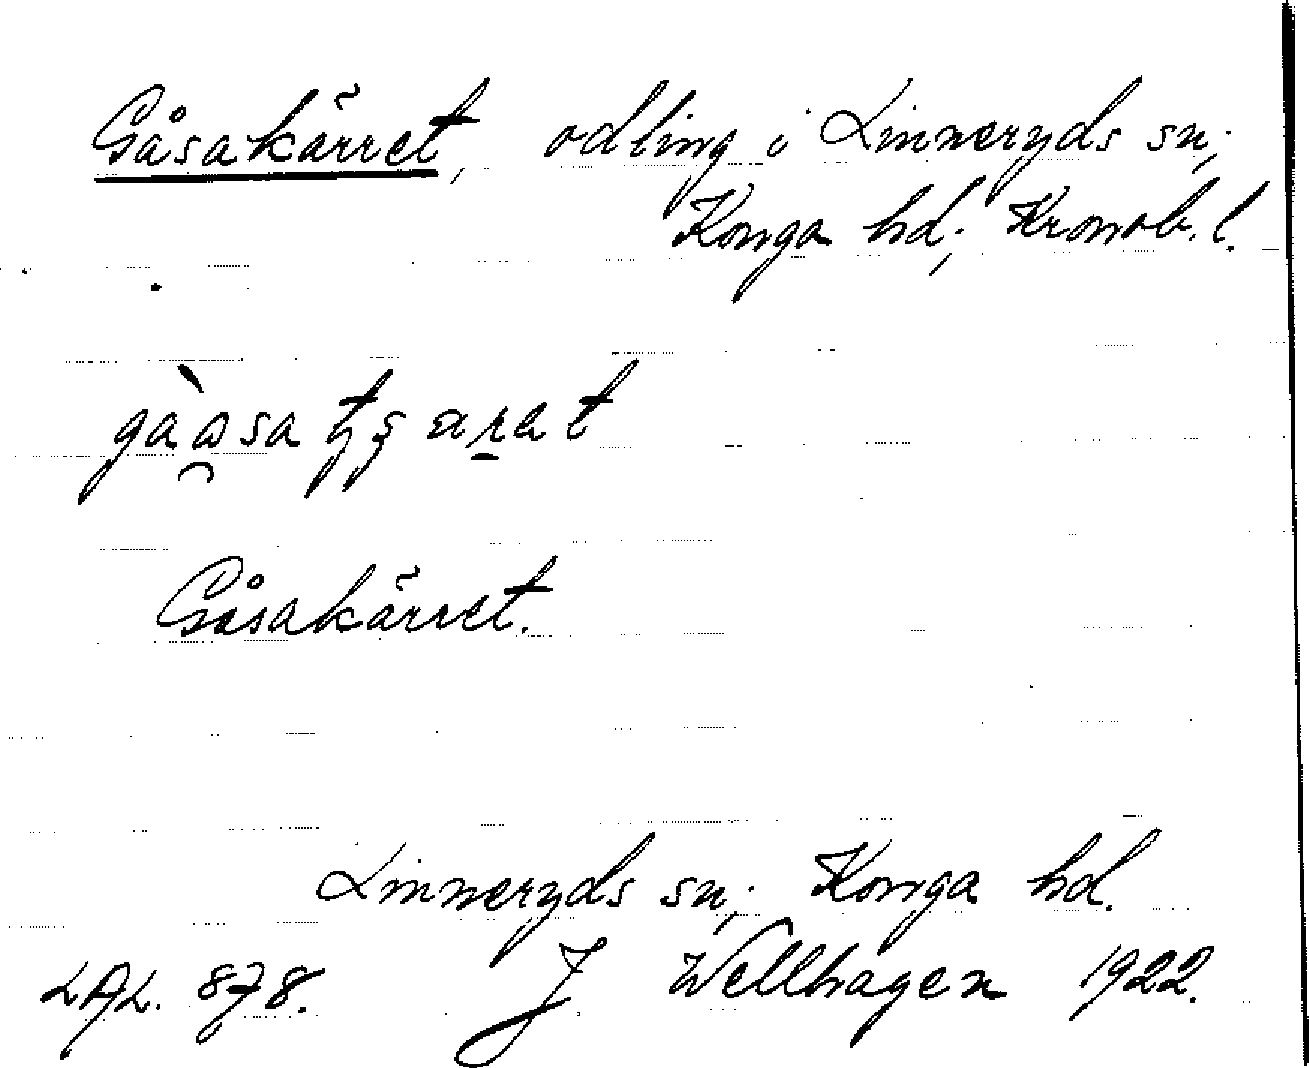 Gåsakärret, odling i Linneryds sn;
Konga hd; Kronob. l.
Gåsakärret.
Linneryds sn; Konga hd.
LAL. 878. J Wellhagen 1922.